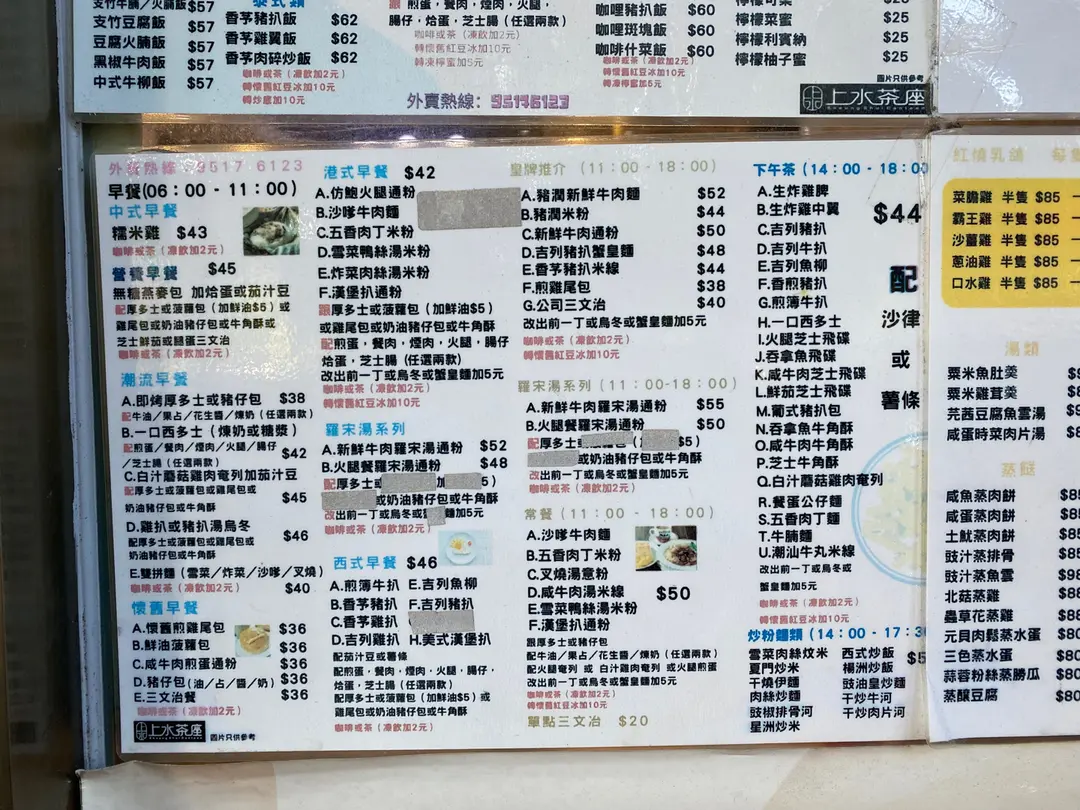 支竹豆腐飯 $57
豆腐火腩飯 $57
黑椒牛肉飯 $57
中式牛柳飯 $57
香茅豬扒飯 $62
香茅雞翼飯 $62
香茅肉碎炒飯 $62
咖啡或茶（凍飲加2元）
轉懷舊紅豆冰加10元
轉炒底加10元
跟 煎蛋，餐肉，煙肉，火腿，
腸仔，烚蛋，芝士腸（任選兩款）
咖啡或茶（凍飲加2元）
轉懷舊紅豆冰加10元
轉凍檸蜜加5元
外賣熱線：95146123
咖哩豬扒飯 $60
咖哩斑塊飯 $60
咖哩什菜飯 $60
咖啡或茶（凍飲加2元）
轉懷舊紅豆冰加10元
轉凍檸蜜加5元
$25
檸檬菜蜜 $25
檸檬利賓納 $25
檸檬柚子蜜 $25
圖片只供參考
上水茶座
外賣熱線：9517 6123
早餐(06：00 - 11：00)
中式早餐
糯米雞 $43
咖啡或茶（凍飲加2元）
營養早餐 $45
無糖燕麥包 加烚蛋或茄汁豆
配厚多士或菠蘿包（加鮮油$5）或
雞尾包或奶油豬仔包或牛角酥或
芝士鮮茄或腿蛋三文治
咖啡或茶（凍飲加2元）
潮流早餐
A.即烤厚多士或豬仔包 $38
配牛油／果占／花生醬／煉奶（任選兩款）
B.一口西多士（煉奶或糖漿）
配煎蛋／餐肉／煙肉／火腿／腸仔 $42
／芝士腸（任選兩款）
C.白汁蘑菇雞肉奄列加茄汁豆
配厚多士或菠蘿包或雞尾包或 $45
奶油豬仔包或牛角酥
D.雞扒或豬扒湯烏冬 $46
配厚多士或菠蘿包或雞尾包或
奶油豬仔包或牛角酥
E.雙拼麵（雪菜／炸菜／沙嗲／叉燒）
咖啡或茶（凍飲加2元） $40
懷舊早餐
A.懷舊煎雞尾包 $36
B.鮮油菠蘿包 $36
C.咸牛肉煎蛋通粉 $36
D.豬仔包（油／占／醬／奶） $36
E.三文治餐 $36
咖啡或茶（凍飲加2元）
上水茶座
圖片只供參考
港式早餐 $42
A.仿鮑火腿通粉
B.沙嗲牛肉麵
C.五香肉丁米粉
D.雪菜鴨絲湯米粉
E.炸菜肉絲湯米粉
F.漢堡扒通粉
跟厚多士或菠蘿包（加鮮油$5）
或雞尾包或奶油豬仔包或牛角酥
配煎蛋，餐肉，煙肉，火腿，腸仔
烚蛋，芝士腸（任選兩款）
改出前一丁或烏冬或蟹皇麵加5元
咖啡或茶（凍飲加2元）
轉懷舊紅豆冰加10元
羅宋湯系列
A.新鮮牛肉羅宋湯通粉 $52
B.火腿餐羅宋湯通粉 $48
配厚多士 加 5）
或奶油豬仔包或牛角酥
改出前一丁或烏冬或 麵加5元
咖啡或茶（凍飲加2元）
西式早餐 $46
A.煎薄牛扒 E.吉列魚柳
B.香茅豬扒 F.吉列豬扒
C.香茅雞扒
D.吉列雞扒 H.美式漢堡扒
配茄汁豆或薯條
配煎蛋，餐肉，煙肉，火腿，腸仔，
烚蛋，芝士腸（任選兩款）
配厚多士或菠蘿包（加鮮油$5）或
雞尾包或奶油豬仔包或牛角酥
咖啡或茶（凍飲加2元）
皇牌推介（11：00 - 18：00）
A.豬潤新鮮牛肉麵 $52
B.豬潤米粉 $44
C.新鮮牛肉通粉 $50
D.吉列豬扒蟹皇麵 $48
E.香茅豬扒米線 $44
F.煎雞尾包 $38
G.公司三文治 $40
改出前一丁或烏冬或蟹皇麵加5元
咖啡或茶（凍飲加2元）
轉懷舊紅豆冰加10元
羅宋湯系列（11：00-18：00）
A.新鮮牛肉羅宋湯通粉 $55
B.火腿餐羅宋湯通粉 $50
配厚多士 $5）
或奶油豬仔包或牛角酥
改出前一丁或烏冬或蟹皇麵加5元
咖啡或茶（凍飲加2元）
常餐（11：00 - 18：00）
A.沙嗲牛肉麵
B.五香肉丁米粉
C.叉燒湯意粉
D.咸牛肉湯米線 $50
E.雪菜鴨絲湯米粉
F.漢堡扒通粉
跟厚多士或豬仔包
配牛油／果占／花生醬／煉奶（任選兩款）
配火腿奄列 或 白汁雞肉奄列 或火腿煎蛋
改出前一丁或烏冬或蟹皇麵加5元
咖啡或茶（凍飲加2元）
轉懷舊紅豆冰加10元
單點三文治 $20
下午茶（14：00 - 18：00
A.生炸雞脾
B.生炸雞中翼 $44
C.吉列豬扒
D.吉列牛扒
E.吉列魚柳
F.香煎豬扒
G.煎薄牛扒
H.一口西多士
I.火腿芝士飛碟
J.吞拿魚飛碟
K.咸牛肉芝士飛碟
L.鮮茄芝士飛碟
M.葡式豬扒包
N.吞拿魚牛角酥
O.咸牛肉牛角酥
P.芝士牛角酥
Q.白汁蘑菇雞肉奄列
R.餐蛋公仔麵
S.五香肉丁麵
T.牛腩麵
U.潮汕牛丸米線
配
沙律
或
薯條
改出前一丁或烏冬或
蟹皇麵加5元
咖啡或茶（凍飲加2元）
轉懷舊紅豆冰加10元
炒粉麵類（14：00 - 17：3
雪菜肉絲炆米 西式炒飯
夏門炒米 楊洲炒飯
干燒伊麵 豉油皇炒麵
肉絲炒麵 干炒牛河
豉椒排骨河 干炒肉片河
星洲炒米
紅燒乳鴿
菜膽雞 半隻 $85
霸王雞 半隻 $85
沙薑雞 半隻 $85
蔥油雞 半隻 $85
口水雞 半隻 $85
湯類
粟米魚肚羹
粟米雞茸羹
芫茜豆腐魚雲湯
咸蛋時菜肉片湯
蒸餸
咸魚蒸肉餅
咸蛋蒸肉餅
土魷蒸肉餅
豉汁蒸排骨
豉汁蒸魚雲
北菇蒸雞
蟲草花蒸雞
元貝肉鬆蒸水蛋
三色蒸水蛋
蒜蓉粉絲蒸勝瓜
蒸釀豆腐